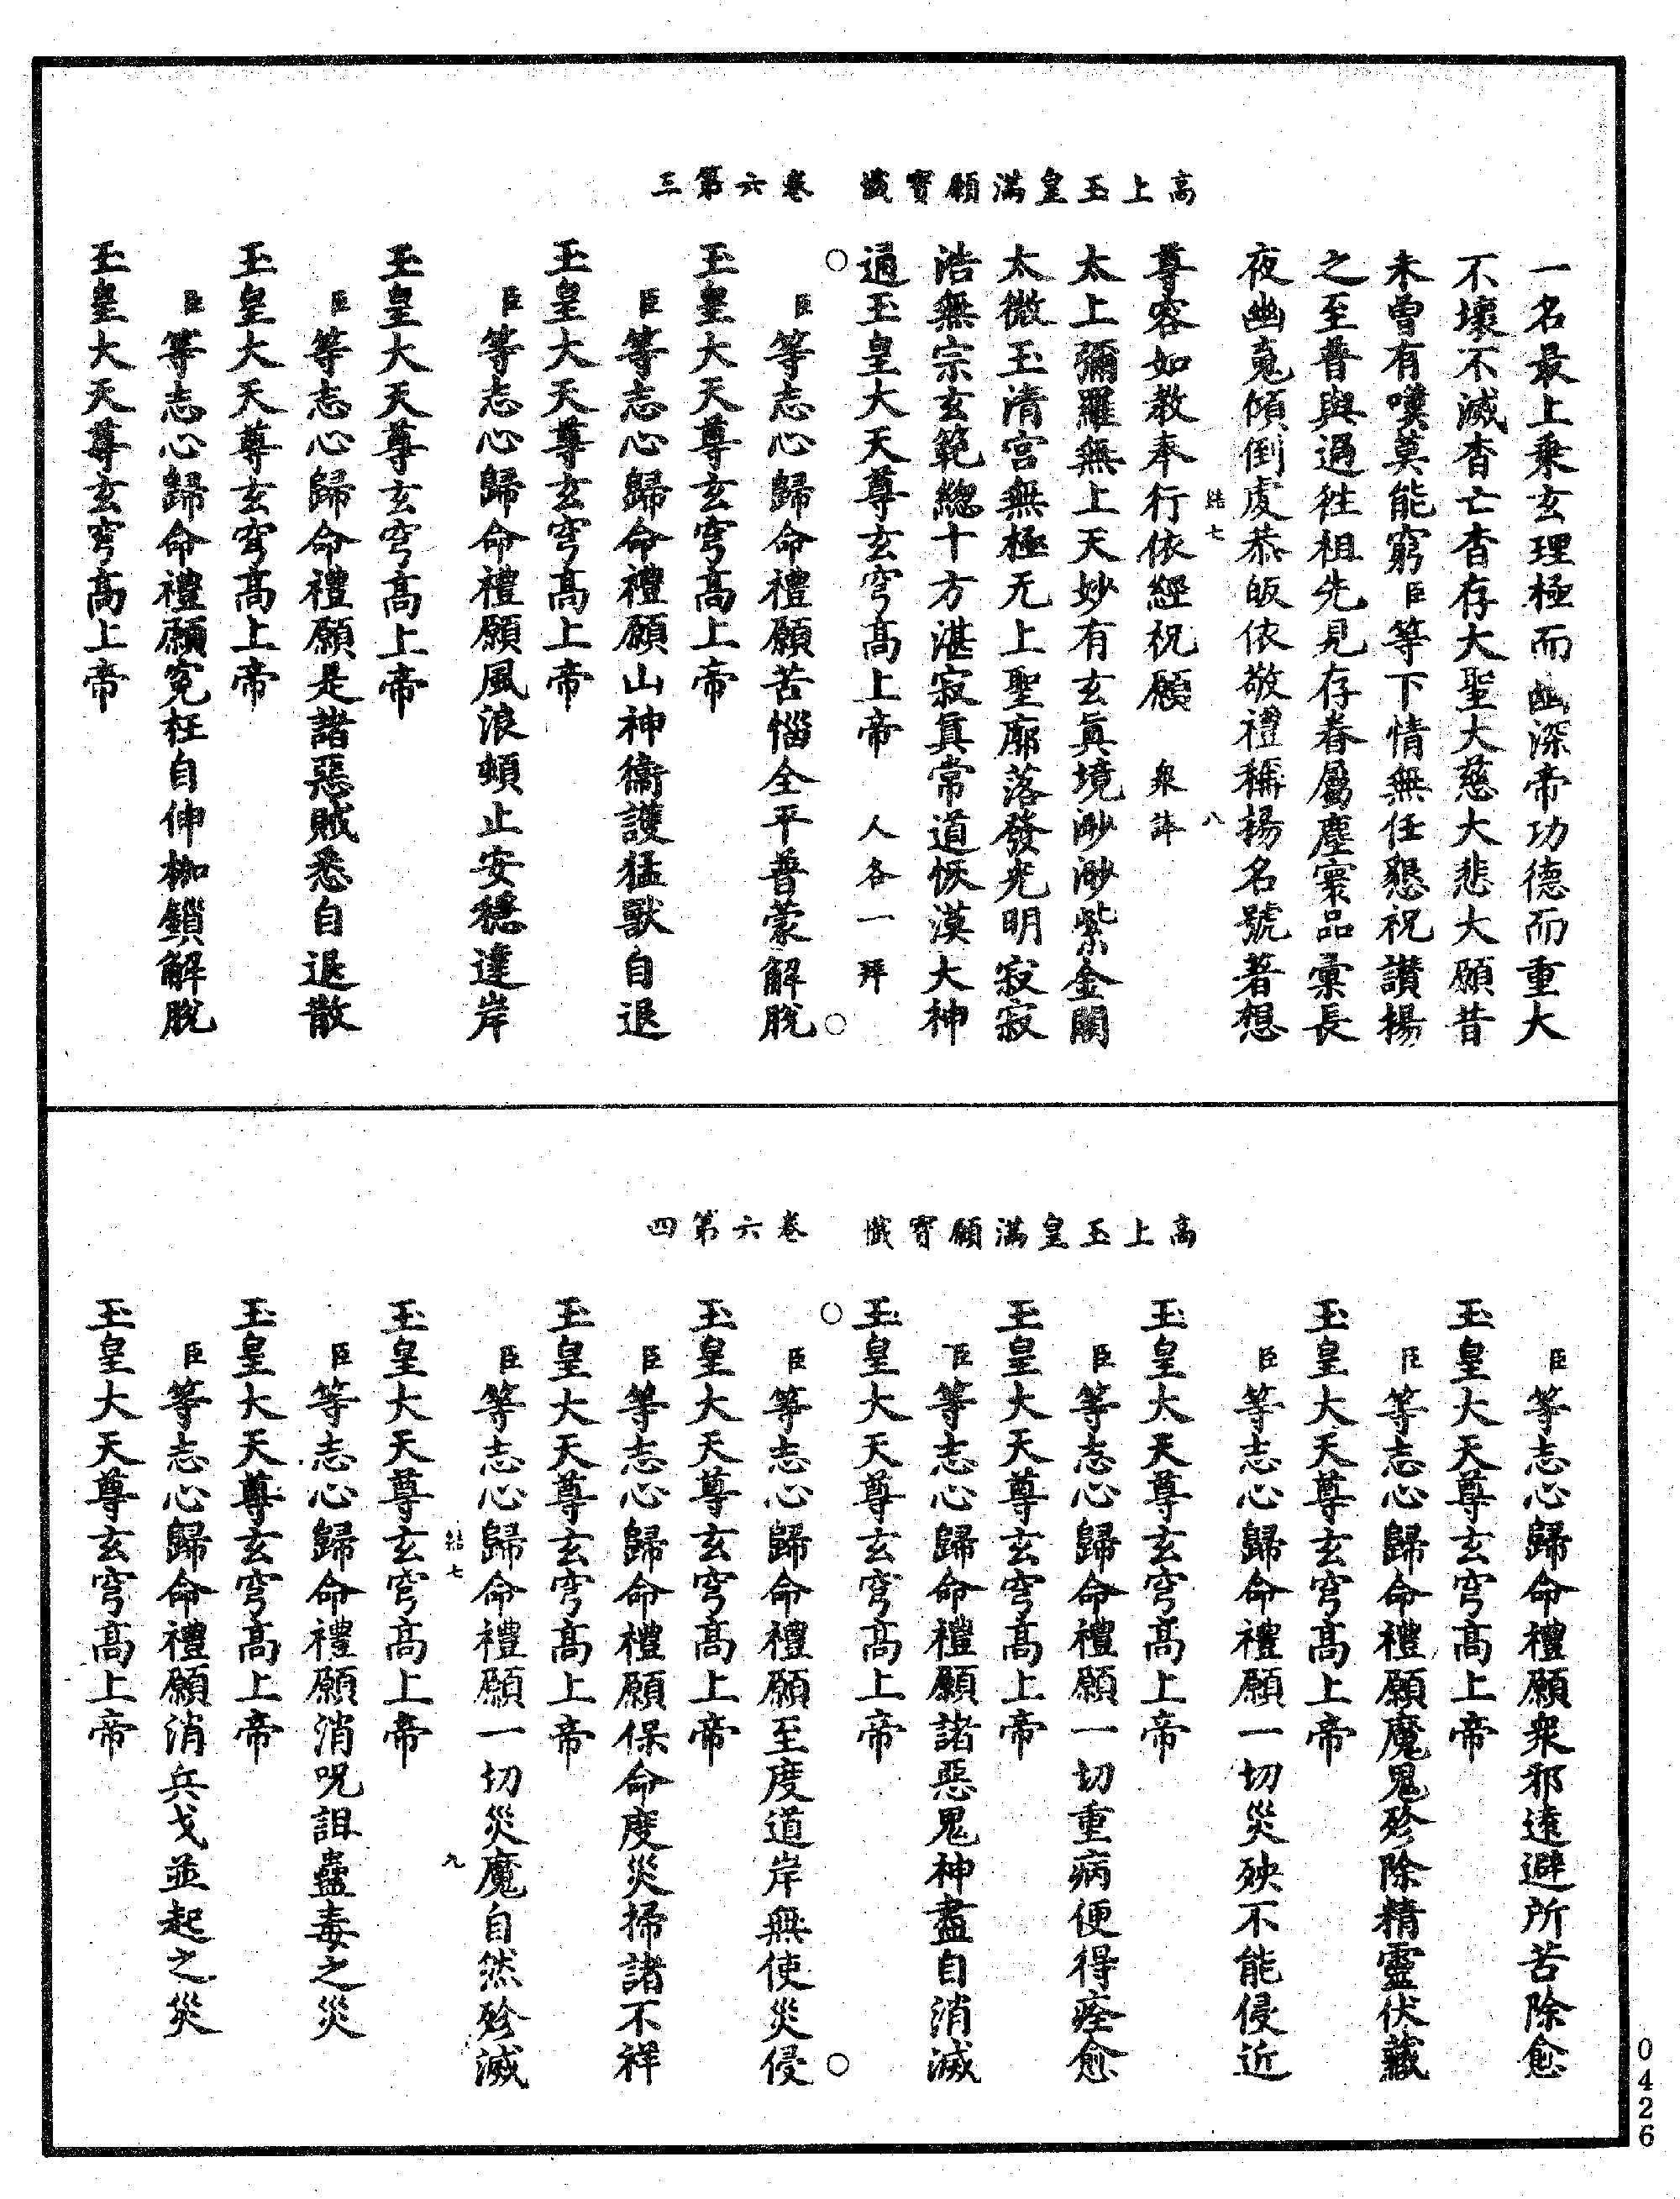 高上玉皇滿願寶懺　卷六第三
一名最上乘玄理極而幽深帝功德而重大
不壞不滅杳亡杳存大聖大慈大悲大願昔
未曾有嘆莫能窮臣等下情無任懇祝讃揚
之至普與過徃祖先見存眷屬塵寰品彙長
夜幽寃傾倒虔恭皈依敬禮稱揚名號著想
結七　八
尊容如教奉行依經祝願　衆誦
太上彌羅無上天妙有玄眞境渺渺紫金闕
太微玉清宫無極无上聖廓落發光明寂寂
浩無宗玄範緫十方湛寂眞常道恢漠大神
通玉皇大天尊玄穹高上帝　人各一拜
臣等志心歸命禮願苦惱全平普蒙解脫
玉皇大天尊玄穹高上帝
臣等志心歸命禮願山神衞護猛獸自退
玉皇大天尊玄穹高上帝
臣等志心歸命禮願風浪頓止安穩達岸
玉皇大天尊玄穹高上帝
臣等志心歸命禮願是諸惡賊悉自退散
玉皇大天尊玄穹高上帝
臣等志心歸命禮願寃枉自伸枷鎖解脫
玉皇大天尊玄穹高上帝
高上玉皇滿願寶懺　卷六第四
臣等志心歸命禮願衆邪遠避所苦除愈
玉皇大天尊玄穹高上帝
臣等志心歸命禮願魔鬼殄除精靈伏藏
玉皇大天尊玄穹高上帝
臣等志心歸命禮願一切災殃不能侵近
玉皇大天尊玄穹高上帝
臣等志心歸命禮願一切重病便得痊愈
玉皇大天尊玄穹高上帝
臣等志心歸命禮願諸惡鬼神盡自消滅
玉皇大天尊玄穹高上帝
臣等志心歸命禮願至度道岸無使災侵
玉皇大天尊玄穹高上帝
臣等志心歸命禮願保命度災掃諸不祥
玉皇大天尊玄穹高上帝
臣等志心歸命禮願一切災魔自然殄滅
結七　九
玉皇大天尊玄穹高上帝
臣等志心歸命禮願消呪詛蠱毒之災
玉皇大天尊玄穹高上帝
臣等志心歸命禮願消兵戈並起之災
玉皇大天尊玄穹高上帝
0426